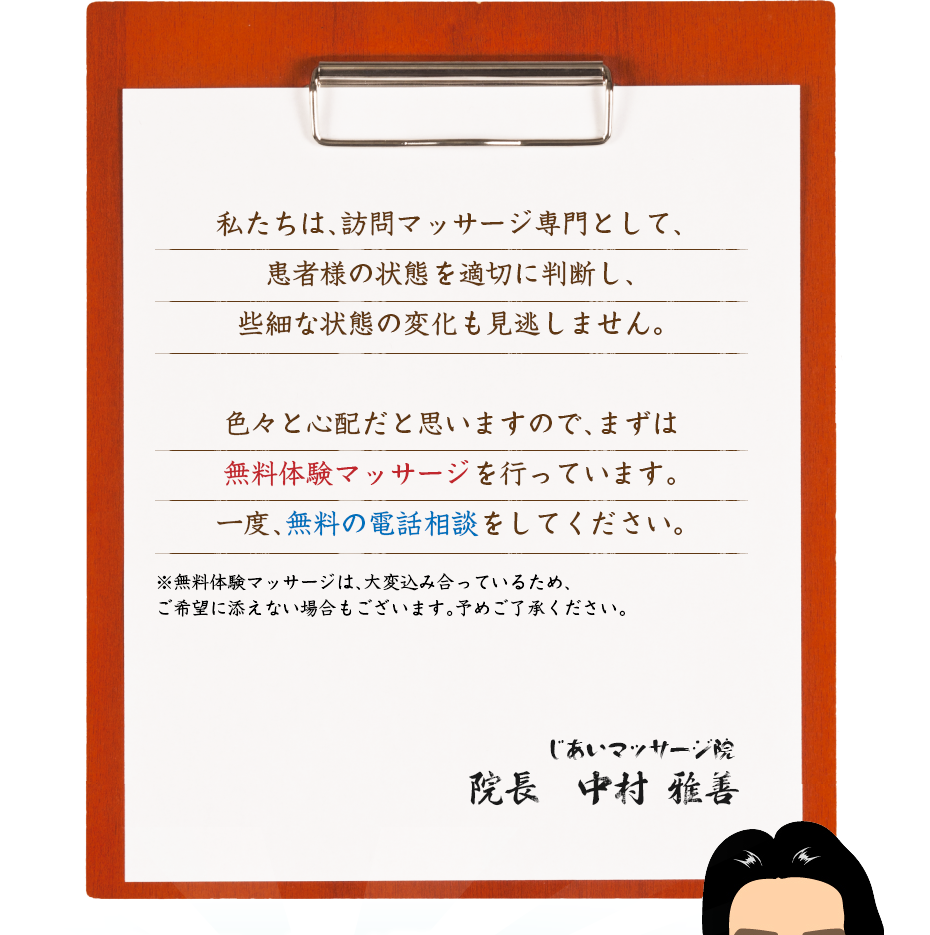 私たちは、訪問マッサージ専門として、
患者様の状態を適切に判断し、
些細な状態の変化も見逃しません。
色々と心配だと思いますので、まずは
無料体験マッサージを行っています。
一度、無料の電話相談をしてください。
※無料体験マッサージは、大変込み合っているため、
ご希望に添えない場合もございます。予めご了承ください。
じあいマッサージ院
院長 中村 雅善